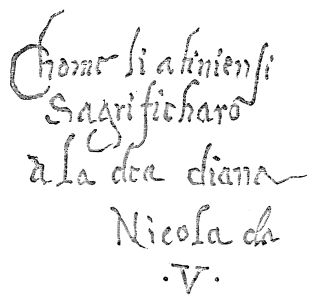 Chome li atiniensi
Sagrificharo
a la dea diana
Nicola da
·V·